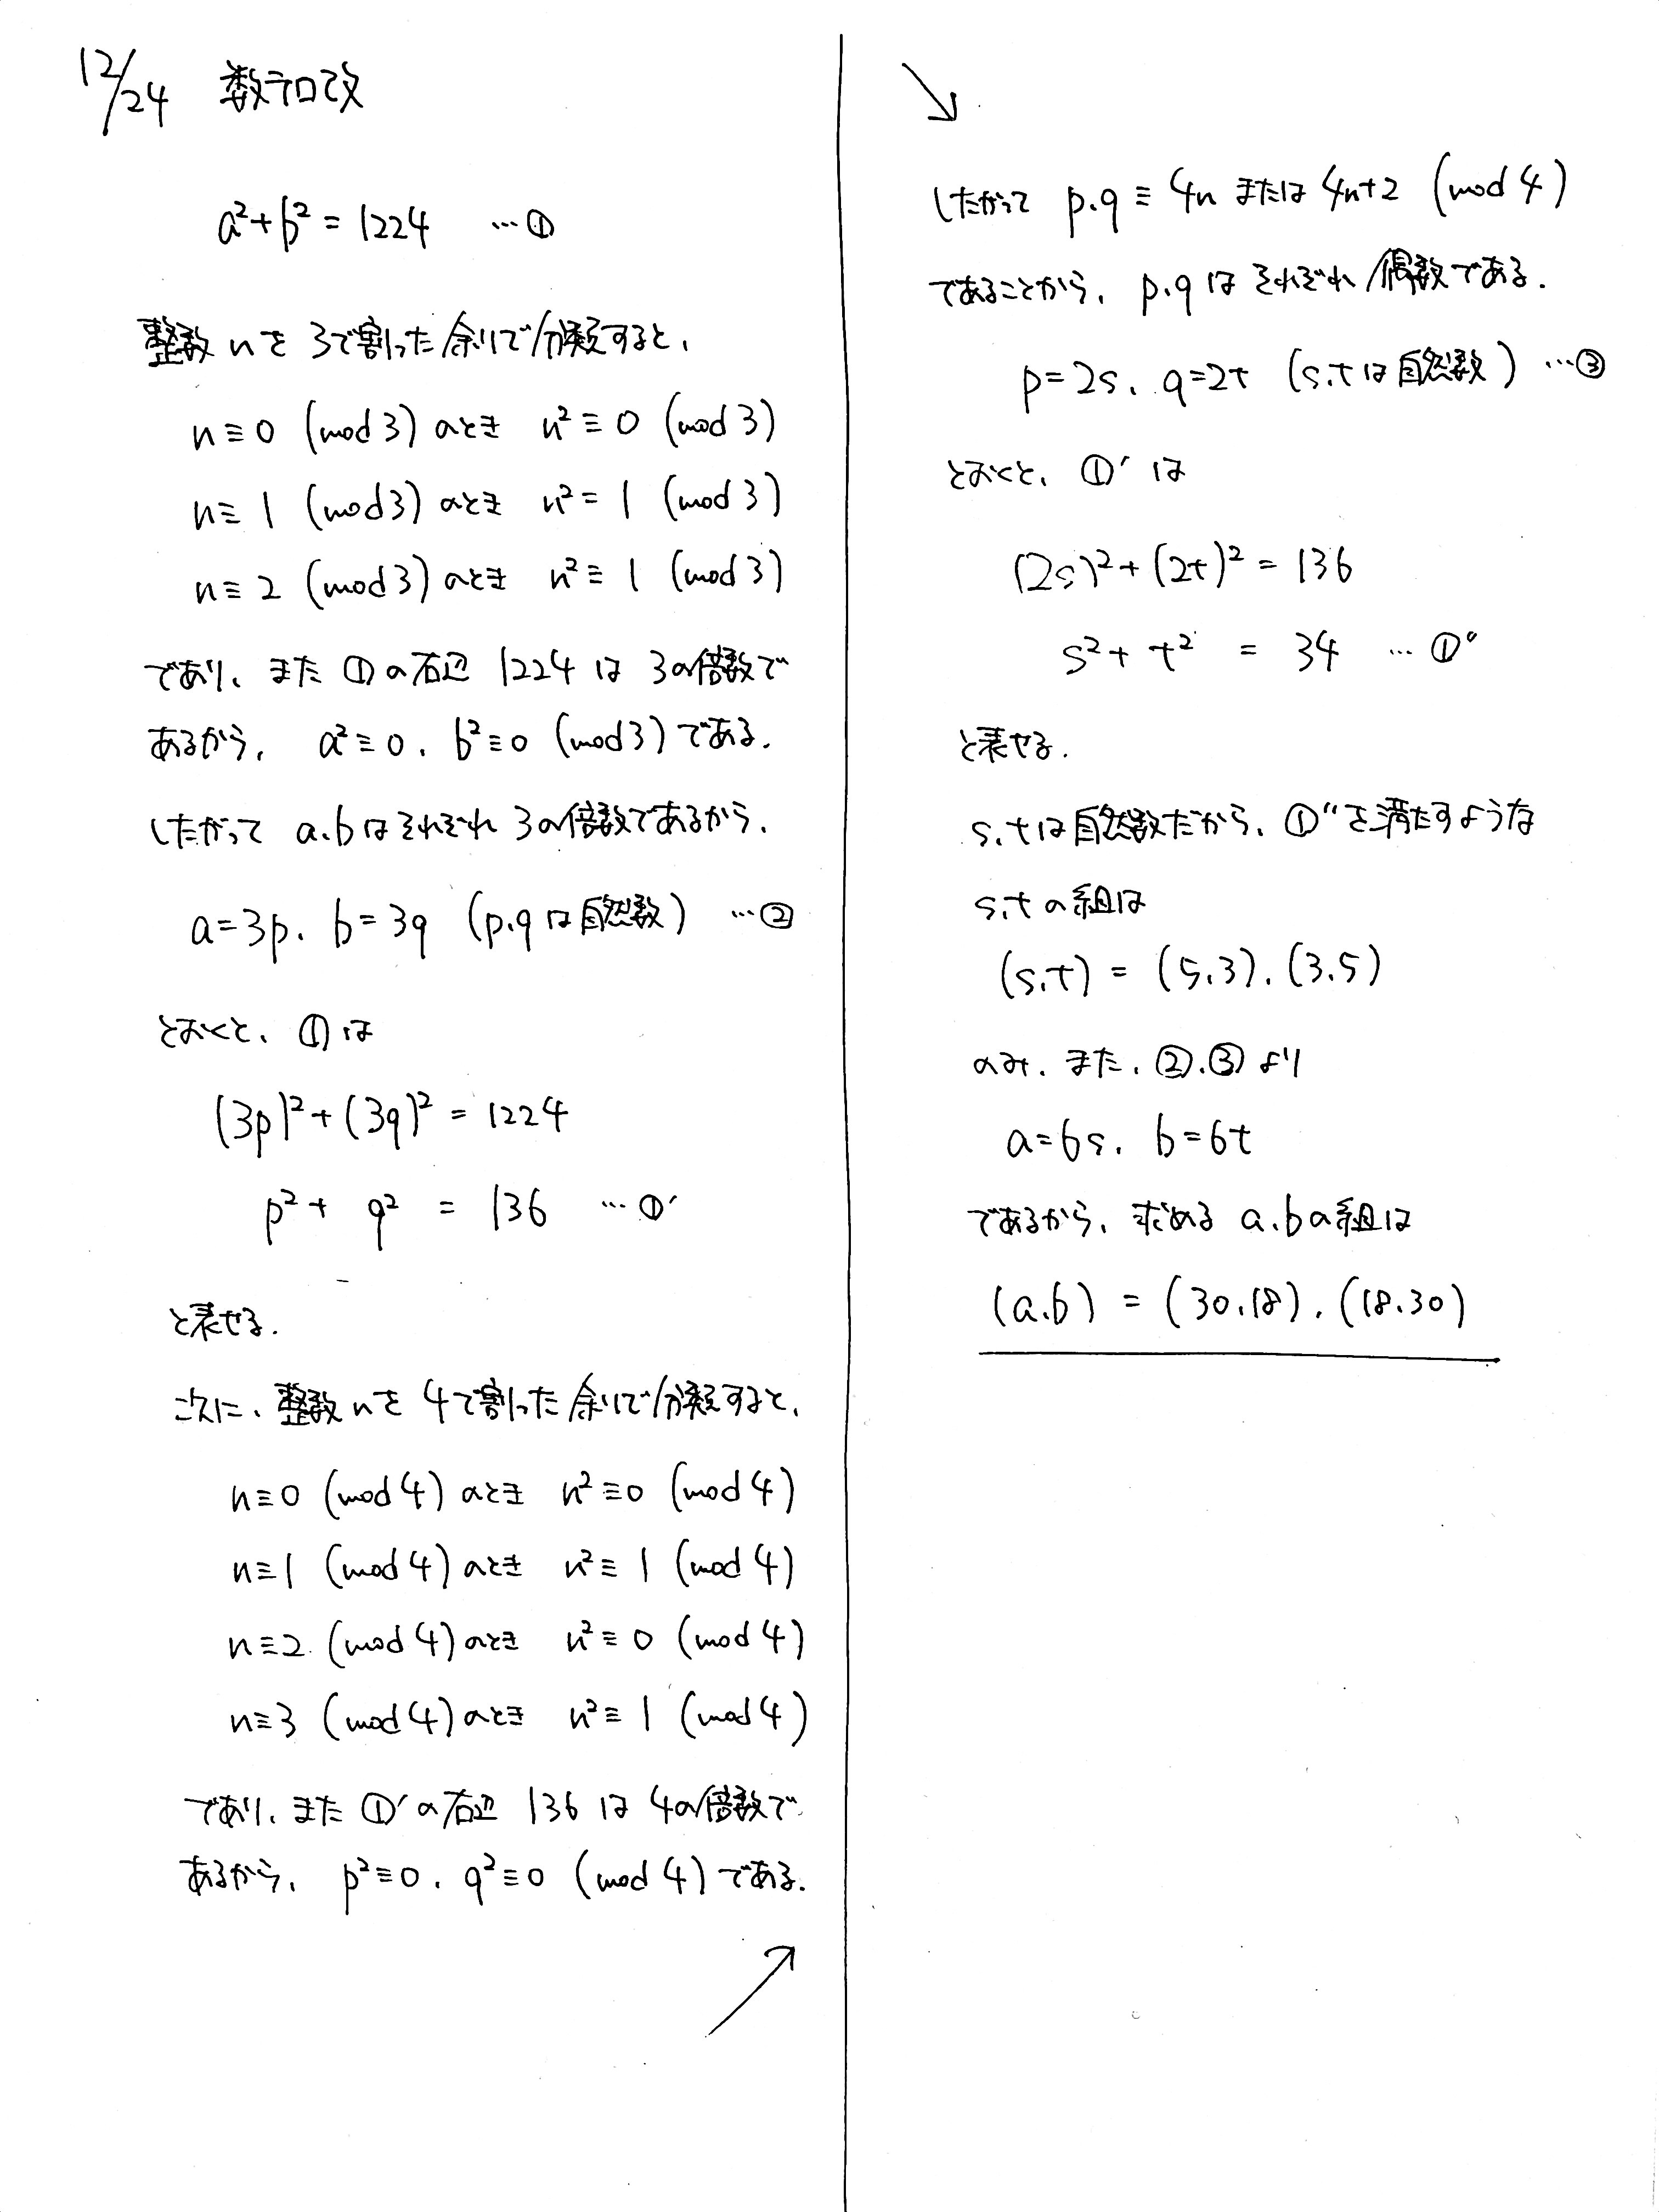 12/24 数テロ改
a²+b²=1224 …①
整数nを3で割った余りで分類すると、
n≡0 (mod3)のとき n²≡0 (mod3)
n≡1 (mod3)のとき n²=1 (mod3)
n≡2 (mod3)のとき n²≡1 (mod3)
であり、また①の右辺1224は3の倍数で
あるから、a²≡0、b²≡0 (mod3)である.
したがってa,bはそれぞれ3の倍数であるから、
a=3p、b=3q (p,qは自然数) …②
とおくと、①は
(3p)²+(3q)²=1224
p²+q²=136 …①′
と表せる.
次に、整数nを4で割った余りで分類すると、
n≡0 (mod4)のとき n²≡0 (mod4)
n≡1 (mod4)のとき n²≡1 (mod4)
n≡2 (mod4)のとき n²≡0 (mod4)
n≡3 (mod4)のとき n²≡1 (mod4)
であり、また①′の右辺136は4の倍数で
あるから、p²≡0、q²≡0 (mod4)である.
↗
↘
したがって p,q≡4nまたは4n+2 (mod4)
であることから、p,qはそれぞれ偶数である.
p=2s、q=2t (s,tは自然数) …③
とおくと、①′は
(2s)²+(2t)²=136
s²+t²=34 …①″
と表せる.
s,tは自然数だから、①″を満たすような
s,tの組は
(s,t)=(5,3),(3,5)
のみ.また、②,③より
a=6s、b=6t
であるから、求めるa,bの組は
(a,b)=(30,18),(18,30)